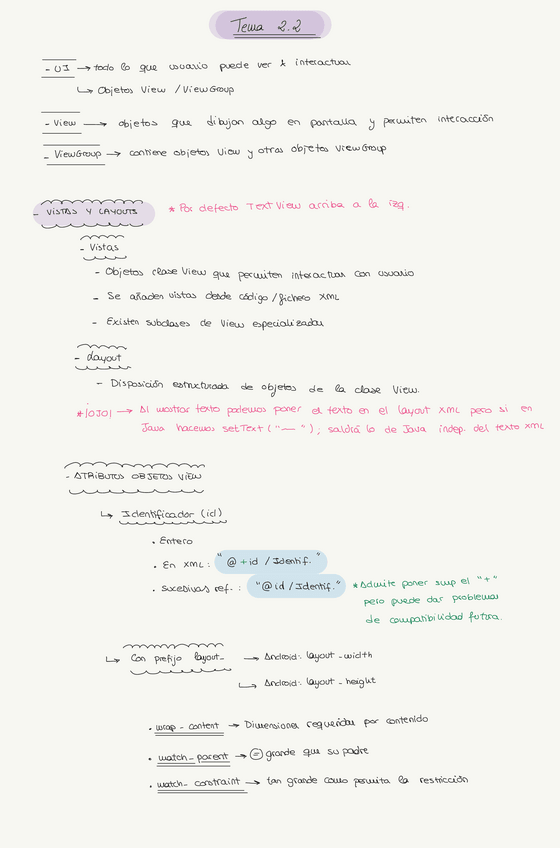 Tema 2.2
- UI → todo lo que usuario puede ver e interactuar
↳ Objetos View / ViewGroup
- View → objetos que dibujan algo en pantalla y permiten interacción
- ViewGroup → contiene objetos View y otros objetos ViewGroup
- VISTAS Y LAYOUTS * Por defecto TextView arriba a la izq.
- Vistas
- Objetos clase View que permiten interactuar con usuario
- Se añaden vistas desde código / fichero XML
- Existen subclases de View especializadas
- Layout
- Disposición estructurada de objetos de la clase View.
* ¡OJO! → Al mostrar texto podemos poner el texto en el layout XML pero si en
Java hacemos setText ("—"); saldrá lo de Java indep. del texto XML
- ATRIBUTOS OBJETOS VIEW
↳ Identificador (id)
• Entero
• En XML: "@ +id / Identif."
• Sucesivas ref. : "@id / Identif." * Admite poner smp el "+"
pero puede dar problemas
de compatibilidad futura.
↳ Con prefijo layout_ → Android: layout_width
↳ Android: layout_height
• wrap_content → Dimensiones requeridas por contenido
• match_parent → = grande que su padre
• match_constraint → tan grande como permita la restricción